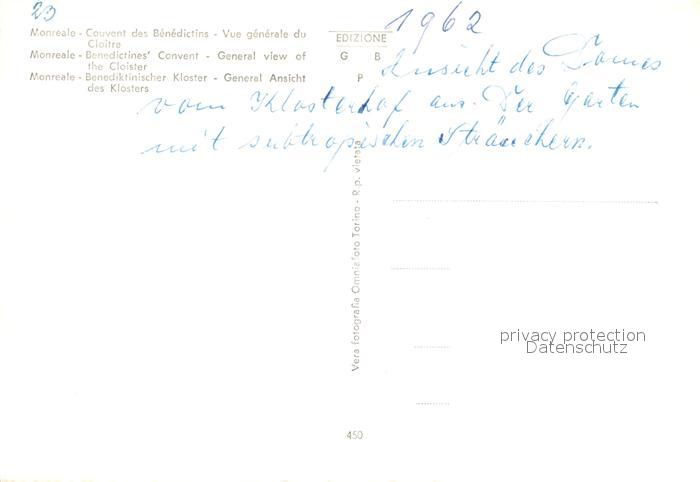 23
1962
Monreale - Couvent des Bénédictins - Vue générale du
Cloitre
Monreale - Benedictines' Convent - General view of
the Cloister
Monreale - Benediktinischer Kloster - General Ansicht
des Klosters
EDIZIONE
G B
P
Ansicht des Domes
vom Klosterhof aus. Der Garten
mit subtropischen Sträuchern.
Vera fotografia Omniafoto Torino - R.p. vietata
privacy protection
Datenschutz
450